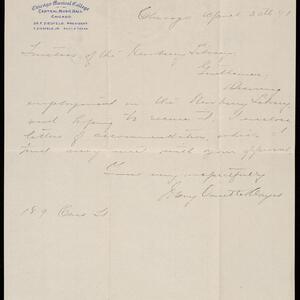 Chicago Musical College
Central Music Hall
Chicago
Dr. F. Ziegfeld, President
Chicago April 20th 91
Trustees of the Newberry Library,
Gentlemen,
Desiring
employment in the Newberry Library
and hoping to secure it, I enclose
letters of recommendation, which I
trust may meet with your approval
Yours very respectfully
189 Cass St